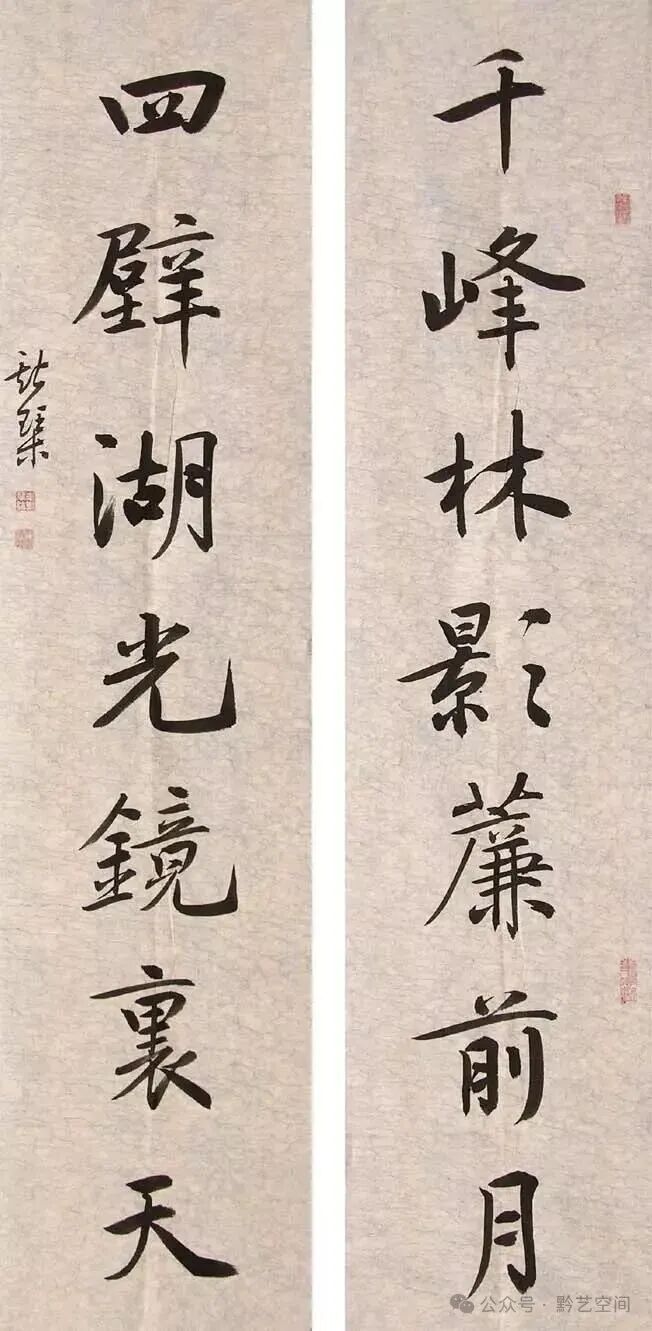 千峰林影簾前月
四壁湖光鏡裏天
公众号·黔艺空间